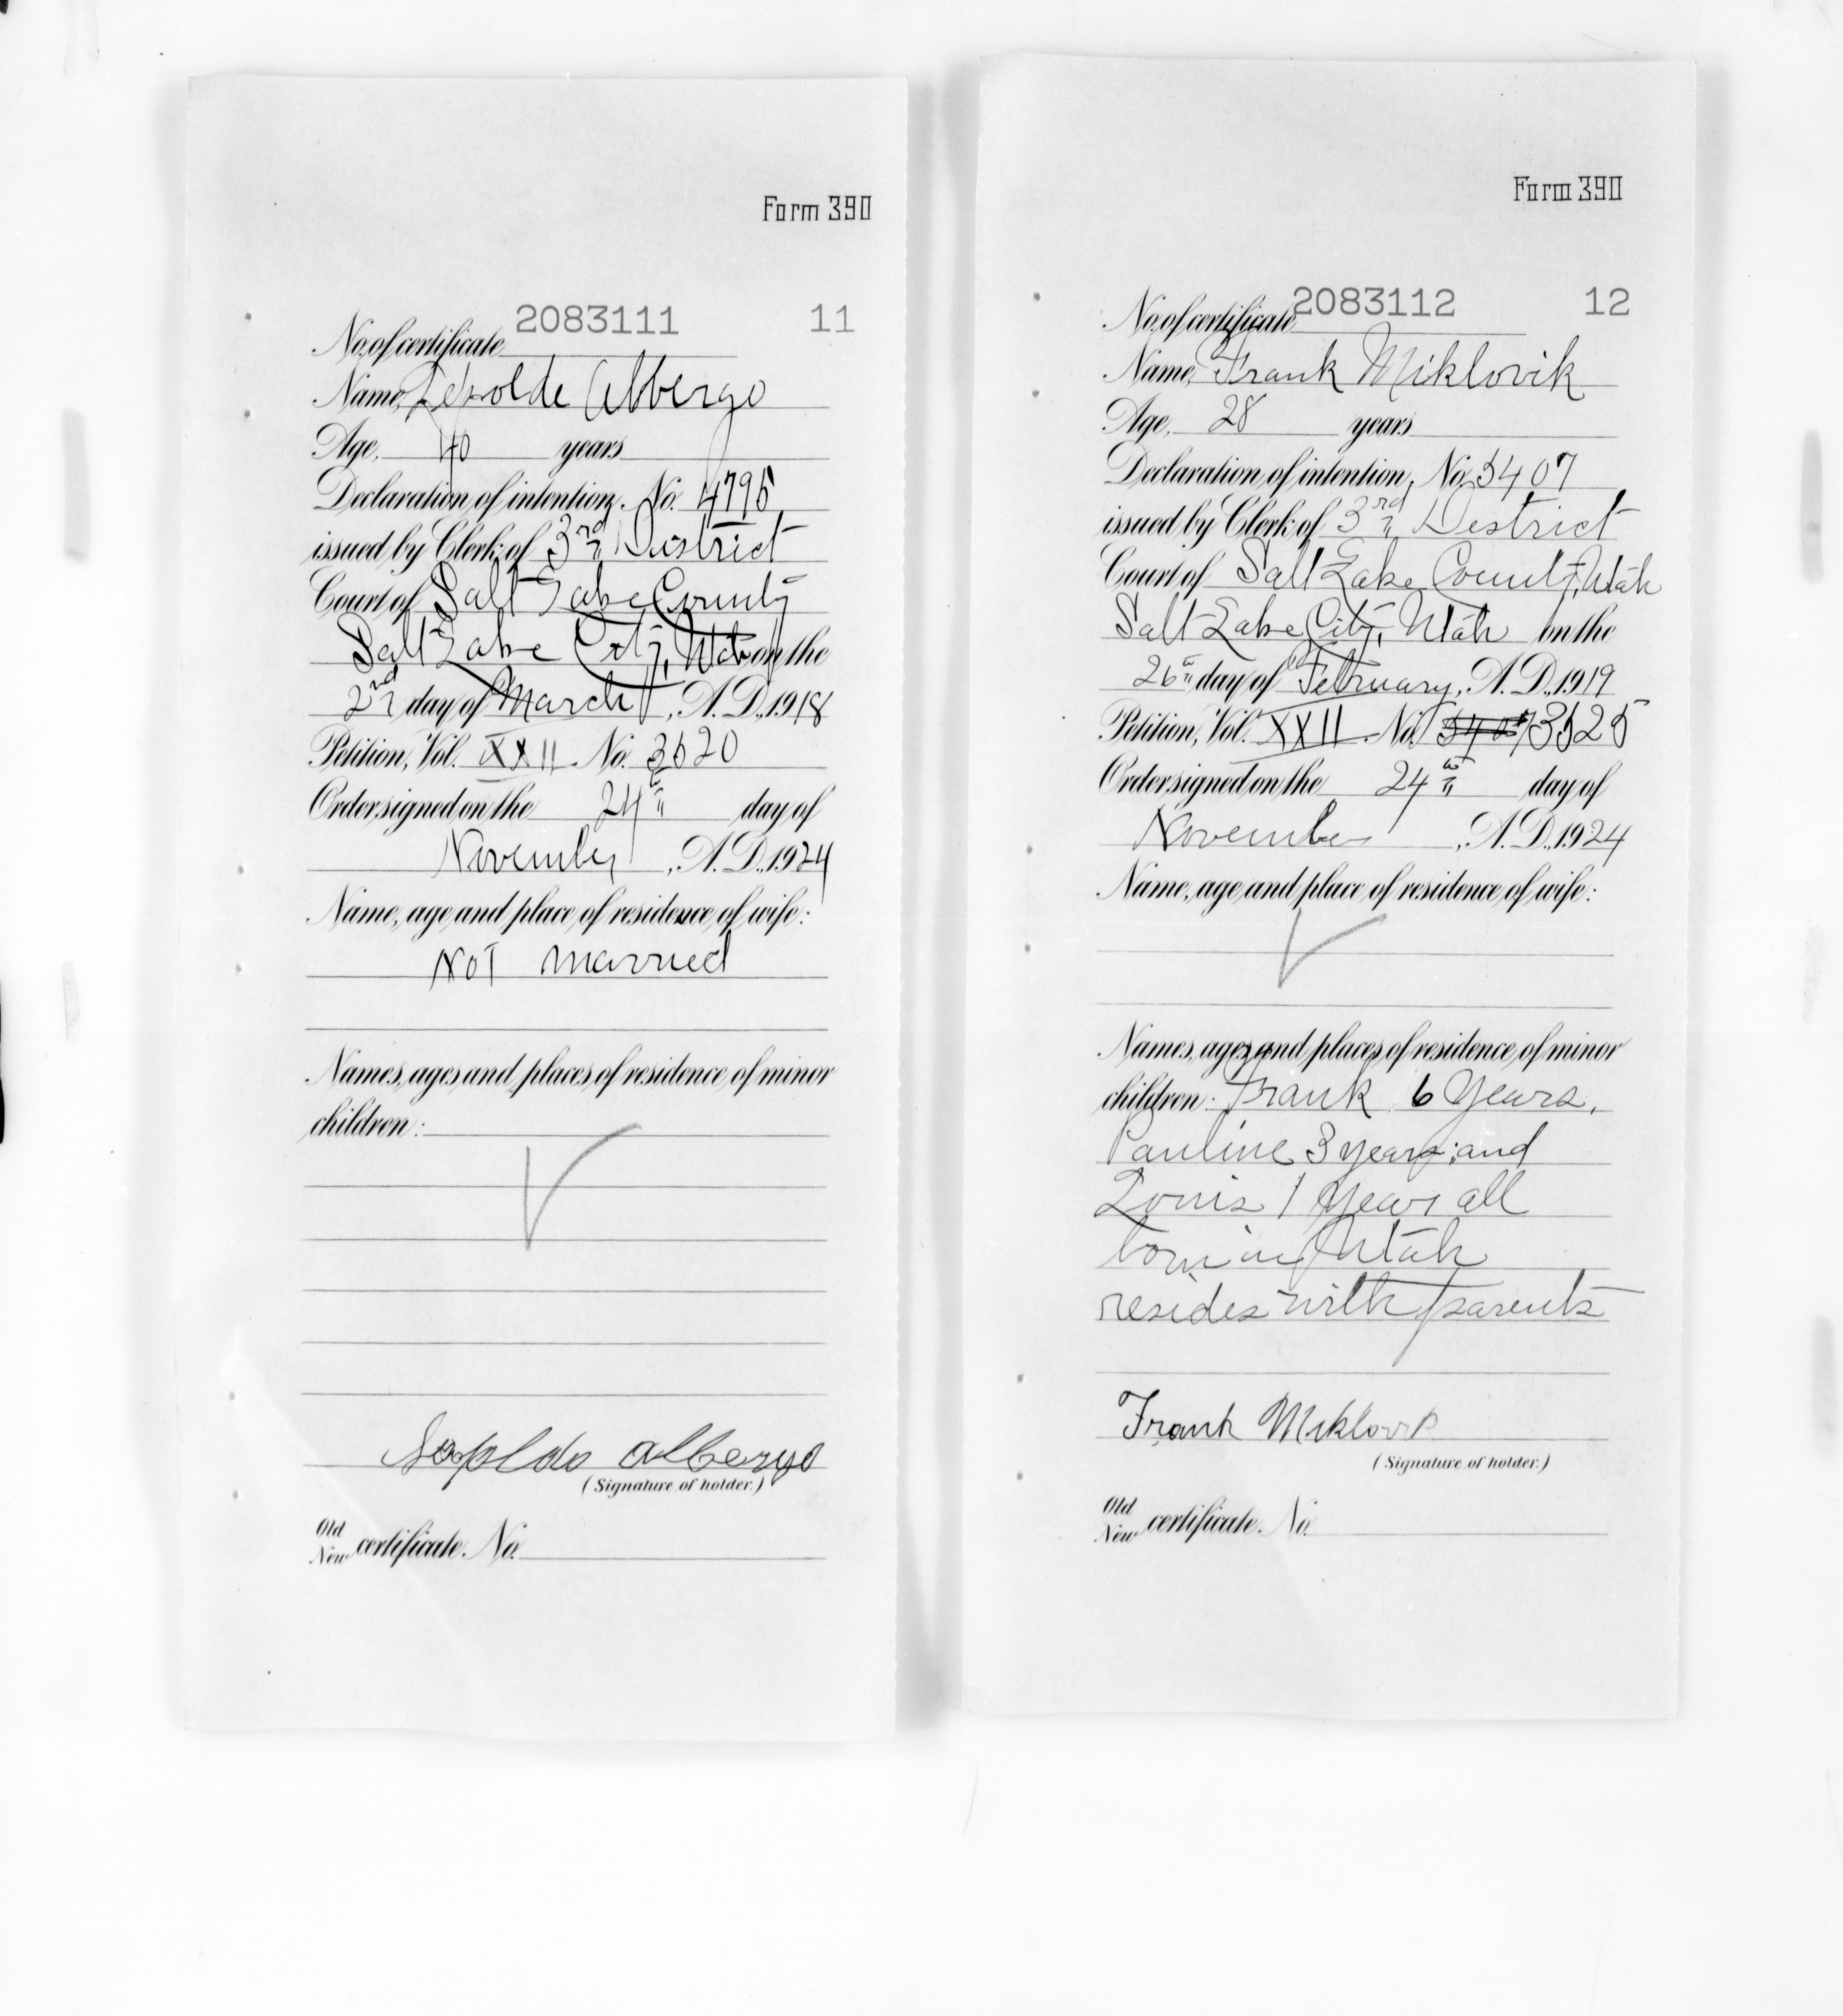 Form 390
2083111 11
No. of certificate
Name, Albergo
Age, 40 years
Declaration of intention, No. 4795
issued by Clerk of 3rd District
Court of Salt Lake County
Salt Lake City, Utah on the
2nd day of March, A. D., 1918
Petition, Vol. XXII No. 3520
Order signed on the 24th day of
November, A. D., 1924
Name, age, and place of residence of wife:
Not married
Names, ages and places of residence of minor
children:
Albergo
(Signature of holder.)
Old
New certificate No.
Form 390
2083112 12
No. of certificate
Name, Frank Miklovik
Age, 28 years
Declaration of intention, No. 5407
issued by Clerk of 3rd District
Court of Salt Lake County, Utah
Salt Lake City, Utah on the
26th day of February, A. D., 1919
Petition, Vol. XXII No. 5407 3525
Order signed on the 24th day of
November, A. D., 1924
Name, age, and place of residence of wife:
Names, ages and places of residence of minor
children: Frank 6 years,
Pauline 3 years; and
Louis 1 year all
born in Utah
resides with parents
Frank Miklovik
(Signature of holder.)
Old
New certificate No.